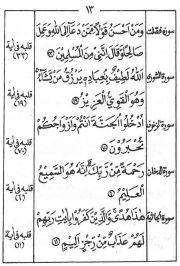 ١٣
سورة فصلت
وَمَنْ أَحْسَنُ قَوْلًا مِمَّنْ دَعَا إِلَى اللهِ وَعَمِلَ
صَالِحًا وَقَالَ إِنَّنِي مِنَ الْمُسْلِمِينَ
قلبه في آية
(٣٣)
سورة الشورى
اللهُ لَطِيفٌ بِعِبَادِهِ يَرْزُقُ مَنْ يَشَاءُ
وَهُوَ الْقَوِيُّ الْعَزِيزُ
قلبه في آية
(١٩)
سورة الزخرف
اُدْخُلُوا الْجَنَّةَ أَنْتُمْ وَأَزْوَاجُكُمْ
تُحْبَرُونَ
قلبه في آية
(٧٠)
سورة الدخان
رَحْمَةً مِنْ رَبِّكَ إِنَّهُ هُوَ السَّمِيعُ
الْعَلِيمُ
قلبه في آية
(٦)
سورة الجاثية
هَذَا هُدًى وَالَّذِينَ كَفَرُوا بِآيَاتِ رَبِّهِمْ
لَهُمْ عَذَابٌ مِنْ رِجْزٍ أَلِيمٌ
قلبه في آية
(١١)